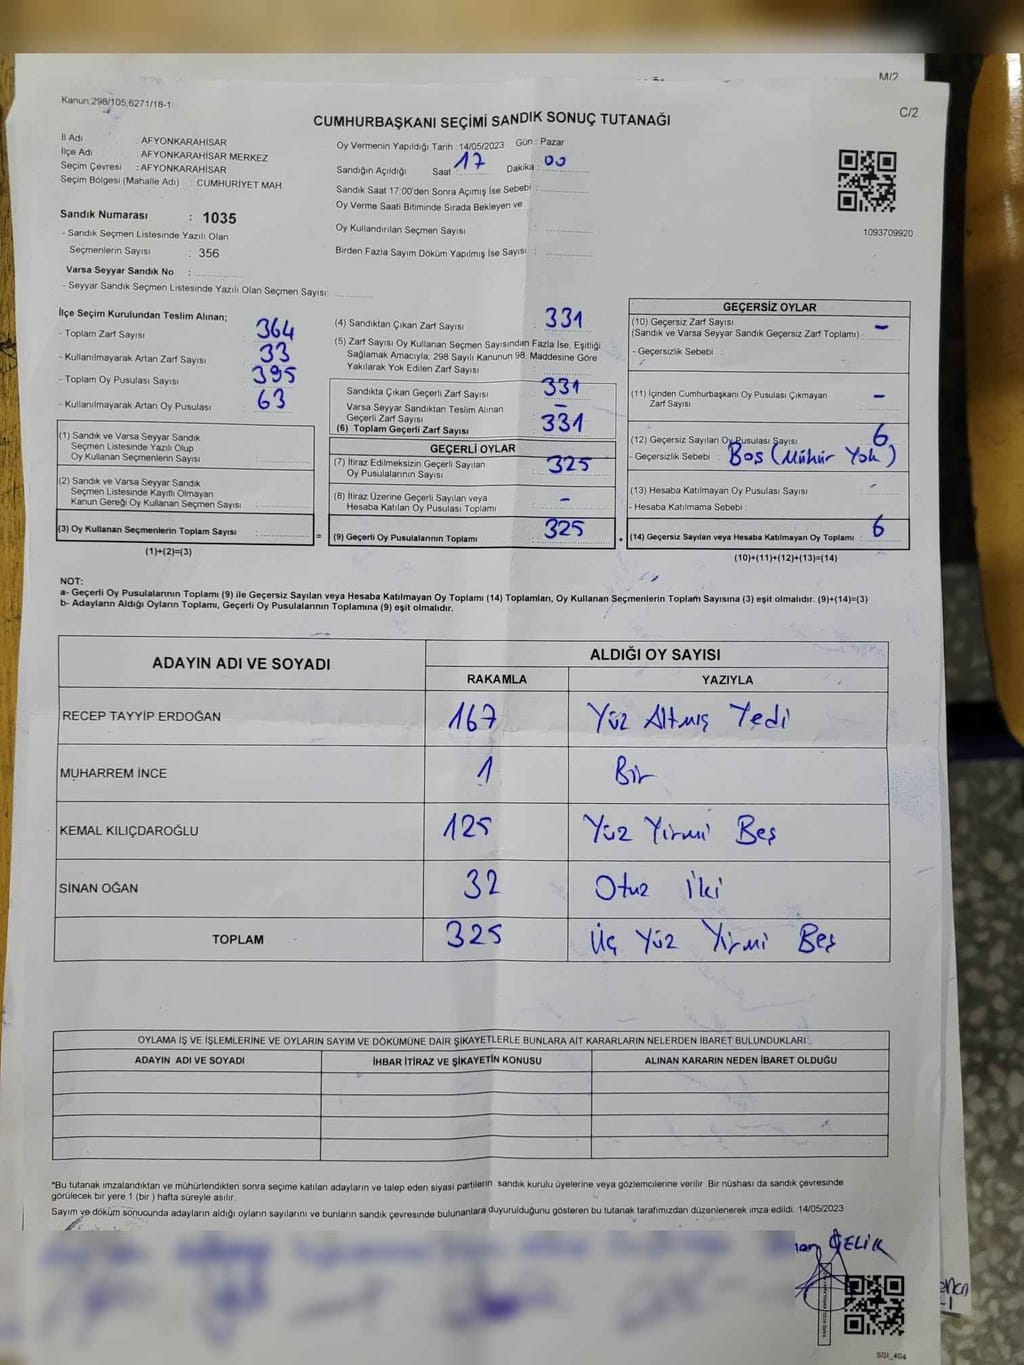 M/2
Kanun,298/105,6271/18-1
C/2
CUMHURBAŞKANI SEÇİMİ SANDIK SONUÇ TUTANAĞI
İl Adı : AFYONKARAHİSAR
İlçe Adı : AFYONKARAHİSAR MERKEZ
Seçim Çevresi : AFYONKARAHİSAR
Seçim Bölgesi (Mahalle Adı) : CUMHURİYET MAH.
Oy Vermenin Yapıldığı Tarih : 14/05/2023 Gün : Pazar
Sandığın Açıldığı Saat 17 Dakika : 00
Sandık Saat 17:00'den Sonra Açımış İse Sebebi :
Oy Verme Saati Bitiminde Sırada Bekleyen ve
Oy Kullandırılan Seçmen Sayısı :
Birden Fazla Sayım Döküm Yapılmış İse Sayısı :
1093709920
Sandık Numarası : 1035
- Sandık Seçmen Listesinde Yazılı Olan
Seçmenlerin Sayısı : 356
Varsa Seyyar Sandık No :
- Seyyar Sandık Seçmen Listesinde Yazılı Olan Seçmen Sayısı:
İlçe Seçim Kurulundan Teslim Alınan;
- Toplam Zarf Sayısı 364
- Kullanılmayarak Artan Zarf Sayısı 33
- Toplam Oy Pusulası Sayısı 395
- Kullanılmayarak Artan Oy Pusulası 63
(1) Sandık ve Varsa Seyyar Sandık
Seçmen Listesinde Yazılı Olup
Oy Kullanan Seçmenlerin Sayısı :
(2) Sandık ve Varsa Seyyar Sandık
Seçmen Listesinde Kayıtlı Olmayan
Kanun Gereği Oy Kullanan Seçmen Sayısı :
(3) Oy Kullanan Seçmenlerin Toplam Sayısı : =
(1)+(2)=(3)
(4) Sandıktan Çıkan Zarf Sayısı : 331
(5) Zarf Sayısı Oy Kullanan Seçmen Sayısından Fazla İse, Eşitliği
Sağlamak Amacıyla; 298 Sayılı Kanunun 98. Maddesine Göre
Yakılarak Yok Edilen Zarf Sayısı :
Sandıkta Çıkan Geçerli Zarf Sayısı : 331
Varsa Seyyar Sandıktan Teslim Alınan
Geçerli Zarf Sayısı : –
(6) Toplam Geçerli Zarf Sayısı : 331
GEÇERLİ OYLAR
(7) İtiraz Edilmeksizin Geçerli Sayılan
Oy Pusulalarının Sayısı : 325
(8) İtiraz Üzerine Geçerli Sayılan veya
Hesaba Katılan Oy Pusulaları Toplamı : –
(9) Geçerli Oy Pusulalarının Toplamı : 325 +
GEÇERSİZ OYLAR
(10) Geçersiz Zarf Sayısı : –
(Sandık ve Varsa Seyyar Sandık Geçersiz Zarf Toplamı)
- Geçersizlik Sebebi :
(11) İçinden Cumhurbaşkanı Oy Pusulası Çıkmayan
Zarf Sayısı : –
(12) Geçersiz Sayılan Oy Pusulası Sayısı : 6
- Geçersizlik Sebebi : Boş (Mühür Yok)
(13) Hesaba Katılmayan Oy Pusulası Sayısı : –
- Hesaba Katılmama Sebebi :
(14) Geçersiz Sayılan veya Hesaba Katılmayan Oy Toplamı : 6
(10)+(11)+(12)+(13)=(14)
NOT:
a- Geçerli Oy Pusulalarının Toplamı (9) ile Geçersiz Sayılan veya Hesaba Katılmayan Oy Toplamı (14) Toplamları, Oy Kullanan Seçmenlerin Toplam Sayısına (3) eşit olmalıdır. (9)+(14)=(3)
b- Adayların Aldığı Oyların Toplamı, Geçerli Oy Pusulalarının Toplamına (9) eşit olmalıdır.
ADAYIN ADI VE SOYADI ALDIĞI OY SAYISI
RAKAMLA YAZIYLA
RECEP TAYYİP ERDOĞAN 167 Yüz Altmış Yedi
MUHARREM İNCE 1 Bir
KEMAL KILIÇDAROĞLU 125 Yüz Yirmi Beş
SİNAN OĞAN 32 Otuz İki
TOPLAM 325 Üç Yüz Yirmi Beş
OYLAMA İŞ VE İŞLEMLERİNE VE OYLARIN SAYIM VE DÖKÜMÜNE DAİR ŞİKAYETLERLE BUNLARA AİT KARARLARIN NELERDEN İBARET BULUNDUKLARI
ADAYIN ADI VE SOYADI İHBAR İTİRAZ VE ŞİKAYETİN KONUSU ALINAN KARARIN NEDEN İBARET OLDUĞU
*Bu tutanak imzalandıktan ve mühürlendikten sonra seçime katılan adayların ve talep eden siyasi partilerin sandık kurulu üyelerine veya gözlemcilerine verilir. Bir nüshası da sandık çevresinde
görülecek bir yere 1 (bir ) hafta süreyle asılır.
Sayım ve döküm sonucunda adayların aldığı oyların sayılarını ve bunların sandık çevresinde bulunanlara duyurulduğunu gösteren bu tutanak tarafımızdan düzenlenerek imza edildi. 14/05/2023
ÇELİK
SSI_404